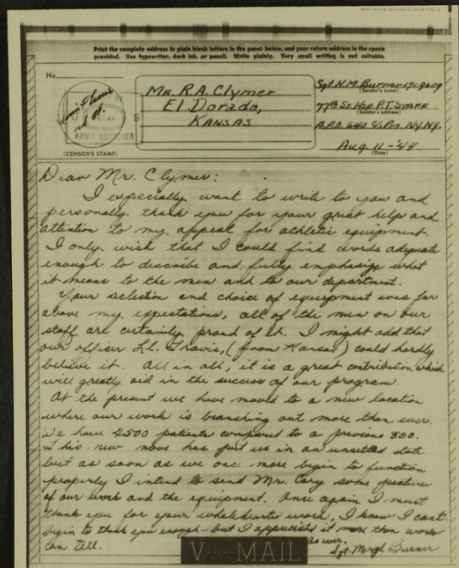 Print the complete address in plain block letters in the panel below, and your return address in the space
provided. Use typewriter, dark ink, or pencil. Write plainly. Very small writing is not suitable.
No.
Mr. R.A. Clymer
El Dorado,
Kansas
Sgt. H.M. Burner
(Sender's name)
77th St. Hsp. P.T. Staff
(Sender's address)
A.P.O. 640 % P.M. N.Y. N.Y.
Aug. 11-'44
(Date)
ARMY EXAMINER
(CENSOR'S STAMP)
Dear Mr. Clymer:
I especially want to write to you and
personally thank you for your great help and
attention to my appeal for athletic equipment.
I only wish that I could find words adequate
enough to describe and fully emphasize what
it means to the men and to our department.
Your selection and choice of equipment was far
above my expectations, all of the men on our
staff are certainly proud of it. I might add that
our officer Lt. Travis, (from Kansas) could hardly
believe it. All in all, it is a great contribution which
will greatly aid in the success of our program.
At the present we have moved to a new location
where our work is branching out more than ever.
We have 4500 patients compared to a previous 800.
This new move has put us in an unsettled state
but as soon as we once more begin to function
properly I intend to send Mr. Cary some pictures
of our work and the equipment. Once again I must
thank you for your wholehearted work, I know I can't
begin to thank you enough but I appreciate it more than words
can tell.
As ever,
Sgt. Meryl Burner
V-MAIL